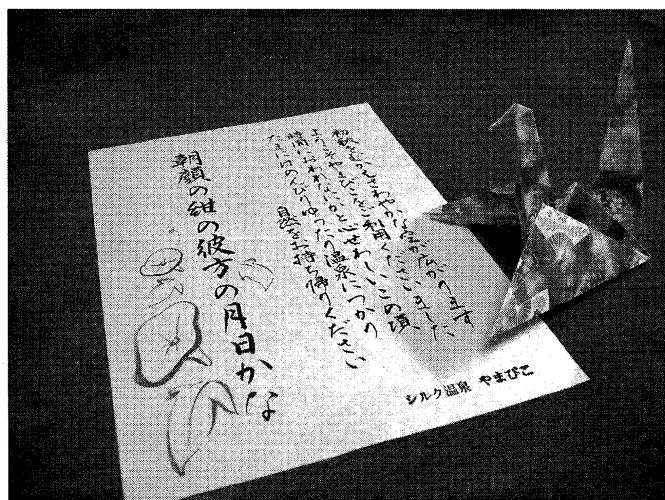 初秋をむかえさわやかな空が広がります
ようこそやまびこをご利用くださいました
時間におわれなにかと心せわしいこの頃、
たまにはのんびりゆったり温泉につかり
自然をお持ち帰りください
朝顔の紺の彼方の月日かな
シルク温泉 やまびこ